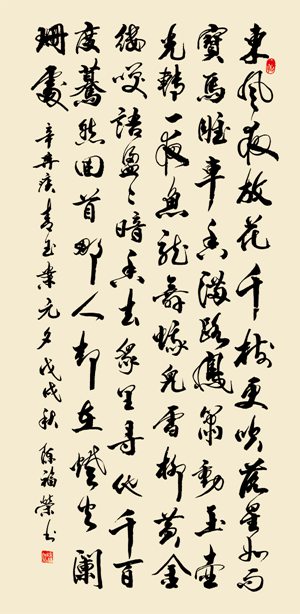 東風夜放花千樹更吹落星如雨
寶馬雕車香滿路鳳簫動玉壺
光轉一夜魚龍舞蛾兒雪柳黃金
縷咲語盈〻暗香去眾里尋他千百
度驀然回首那人却在燈火闌
珊處
辛弃疾青玉案元夕戊戌秋陳福榮书